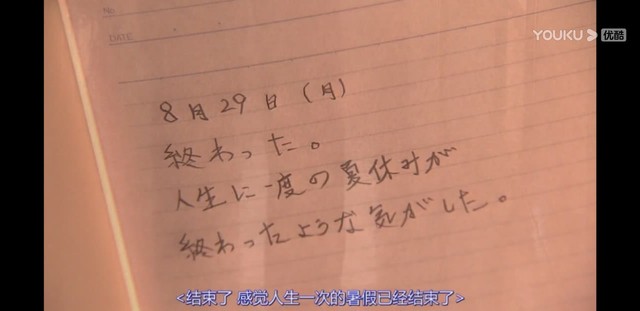 No
DATE
YOUKU 优酷
8月29日（月）
終わった。
人生に一度の夏休みが
終わったような気がした。
<结束了 感觉人生一次的暑假已经结束了>